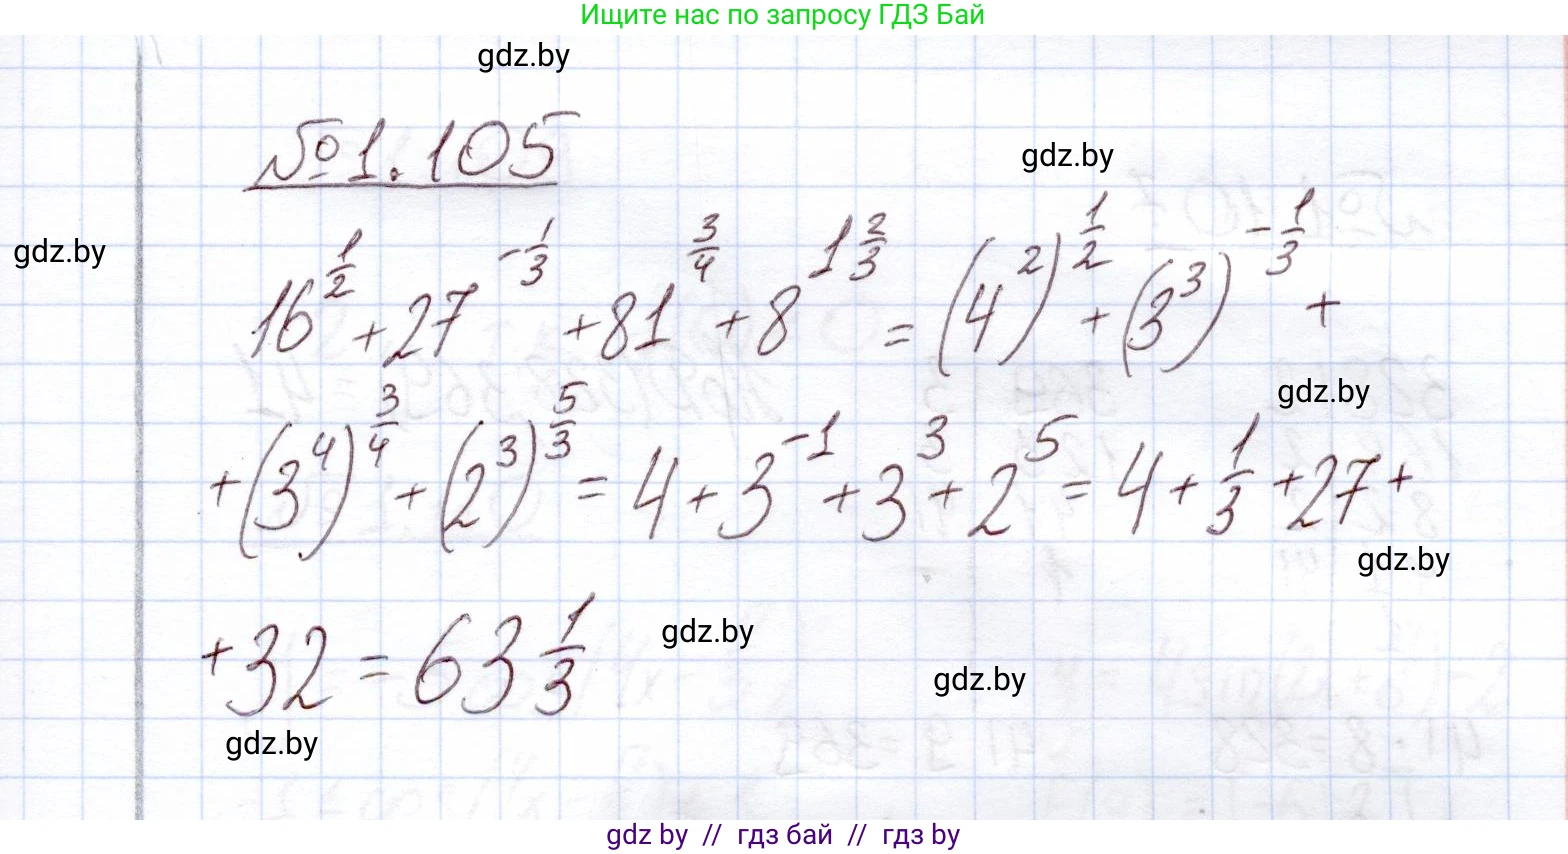 Ищите нас по запросу ГДЗ Бай
gdz.by
№1.105
gdz.by
gdz.by
16^{\frac{1}{2}} + 27^{-\frac{1}{3}} + 81^{\frac{3}{4}} + 8^{1\frac{2}{3}} = (4^2)^{\frac{1}{2}} + (3^3)^{-\frac{1}{3}} +
gdz.by
+ (3^4)^{\frac{3}{4}} + (2^3)^{\frac{5}{3}} = 4 + 3^{-1} + 3^3 + 2^5 = 4 + \frac{1}{3} + 27 +
gdz.by
+ 32 = 63\frac{1}{3}
gdz.by
gdz.by
gdz.by
gdz by // гдз бай // гдз by